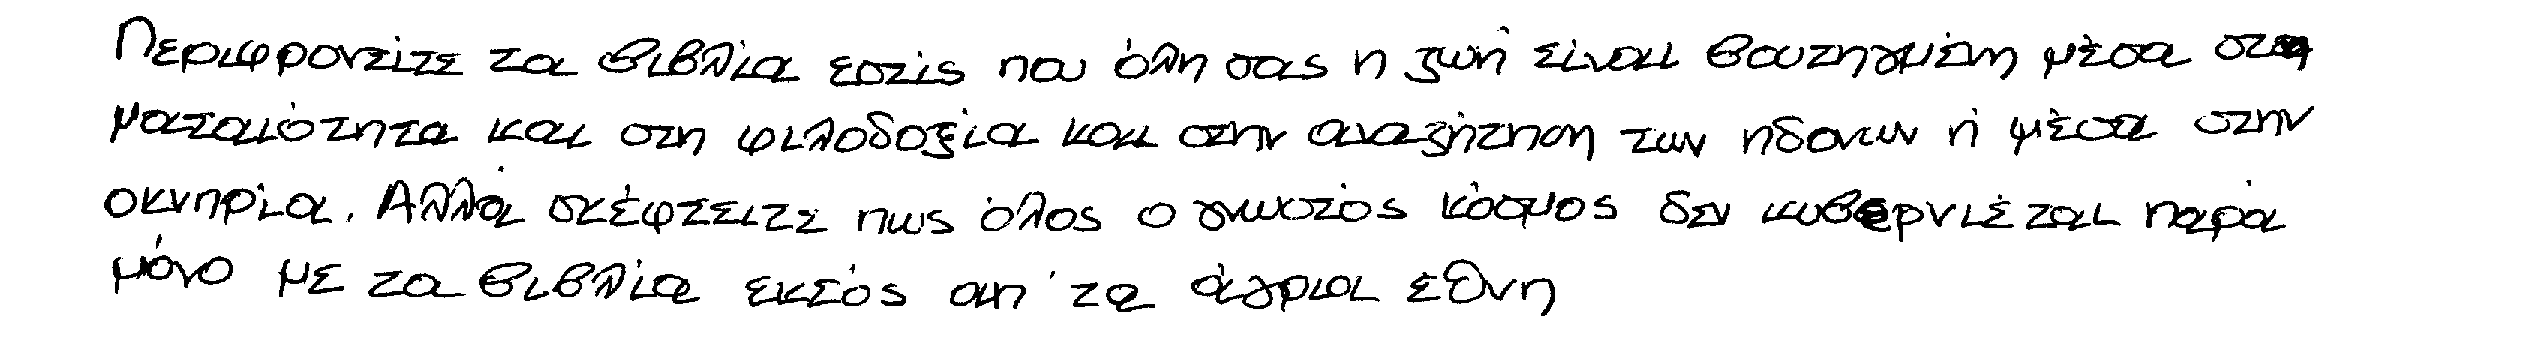 Περιφρονείτε τα βιβλία εσείς που όλη σας η ζωή είναι βουτηγμένη μέσα στη
ματαιότητα και στη φιλοδοξία και στην αναζήτηση των ηδονών ή μέσα στην
οκνηρία. Αλλά σκέφτειτε πως όλος ο γνωστός κόσμος δεν κυβερνιέται παρά
μόνο με τα βιβλία εκτός απ' τα άγρια έθνη